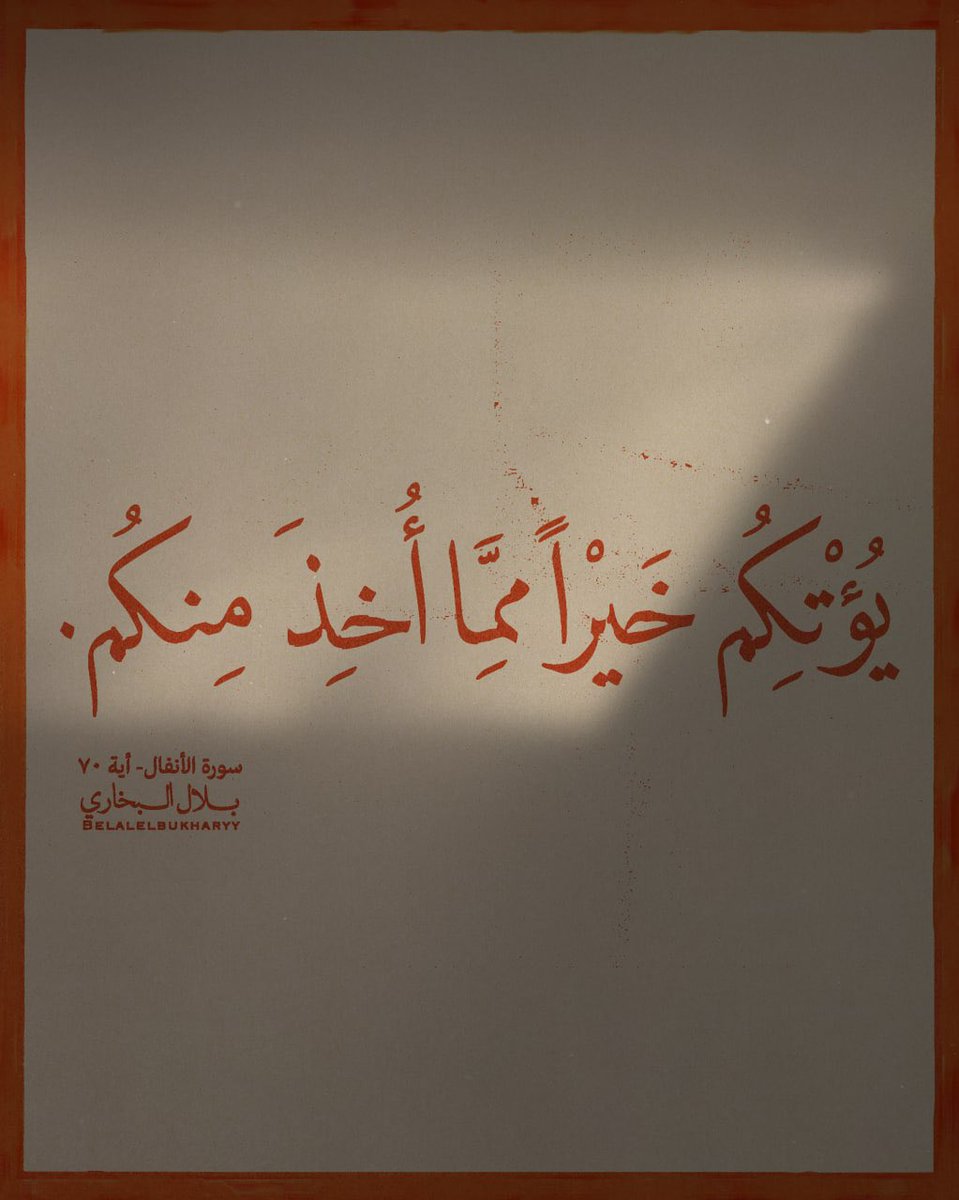 يُؤْتِكُمُ خَيْراً مِمَّا أُخِذَ مِنكُمُ.
سورة الأنفال- أية ٧٠
بلال البخاري
BELALELBUKHARYY